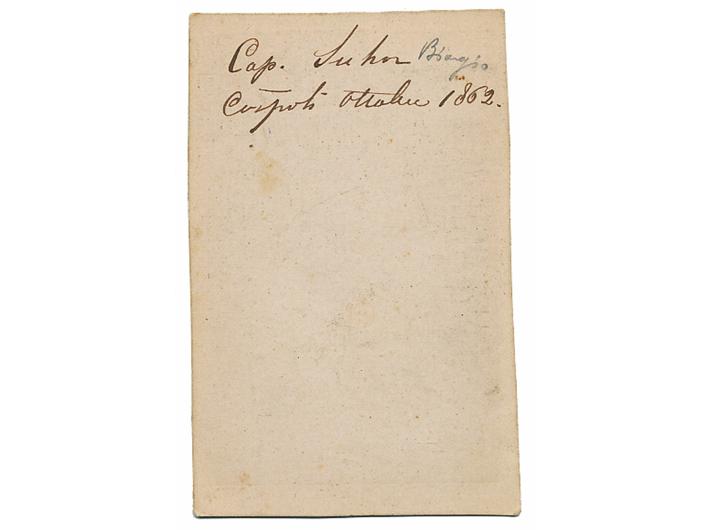 Cap. Suhor Biagio
Cospoli Ottobre 1862.